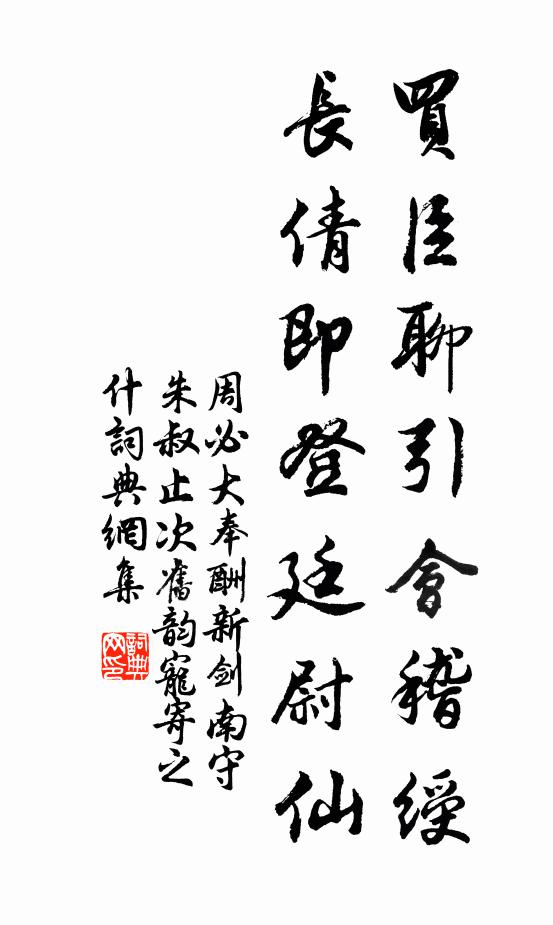 買臣聊引會稽綬
長倩即登廷尉仙
周必大奉酬新劍南守
朱叔止次舊韵寵寄之
什詞典網集
詞典
网